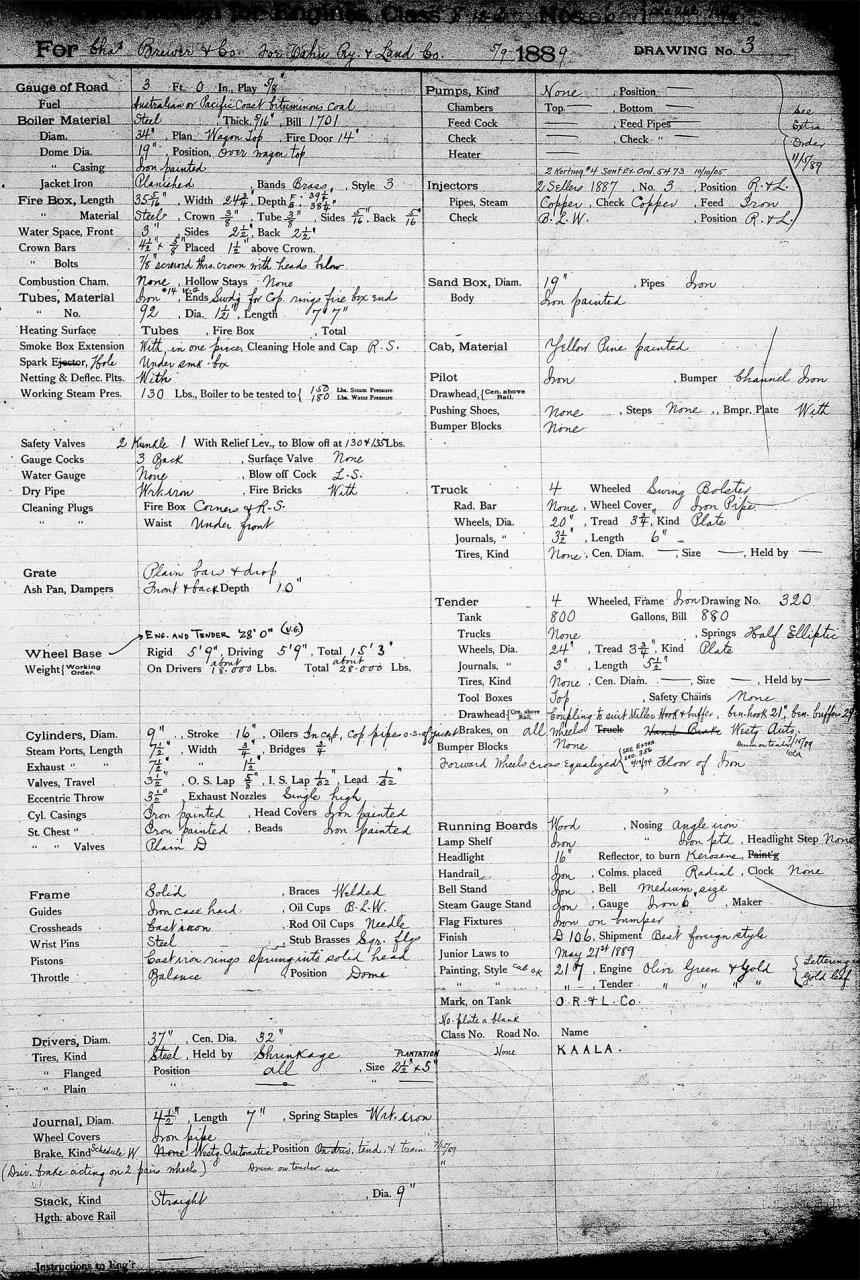 for Engines, Class 8 Nos. 6
For Chas Brewer & Co. For Oahu Ry. & Land Co. 5/9 1889 DRAWING No. 3
Gauge of Road 3 Ft. 0 In., Play 5/8"
Fuel Australian or Pacific Coast bituminous coal
Boiler Material Steel, Thick. 5/16", Bill 1701
Diam. 34", Plan Wagon Top, Fire Door 14"
Dome Dia. 19", Position, Over wagon top
" Casing Iron painted
Jacket Iron Planished, Bands Brass, Style 3
Fire Box, Length 35 5/16", Width 24 3/4, Depth F. 39 1/4" B. 38 1/4"
" Material Steel, Crown 3/8", Tube 3/8", Sides 5/16", Back 5/16"
Water Space, Front 3" Sides 2 1/2", Back 2 1/2"
Crown Bars 4 1/2" x 5/8" Placed 1 1/2" above Crown.
" Bolts 7/8" screwd thro. crown with heads below
Combustion Cham. None, Hollow Stays None
Tubes, Material Iron #14 W.G., Ends Swdg for Cop. rings fire box end
" No. 92, Dia. 1 1/2", Length 7' 7"
Heating Surface Tubes , Fire Box , Total
Smoke Box Extension With, in one piece, Cleaning Hole and Cap R.S.
Spark Ejector, Hole Under smk-box
Netting & Deflec. Plts. With
Working Steam Pres. 130 Lbs., Boiler to be tested to { 150 Lbs. Steam Pressure 180 Lbs. Water Pressure
Safety Valves 2 Kunkle 1 With Relief Lev., to Blow off at 130 & 135 Lbs.
Gauge Cocks 3 Back , Surface Valve None
Water Gauge None , Blow off Cock L-S.
Dry Pipe Wrt. iron , Fire Bricks With
Cleaning Plugs Fire Box Corners & R-S.
" " Waist Under front
Grate Plain bars & drop
Ash Pan, Dampers Front & back Depth 10"
ENG. AND TENDER 28'0" (V.G.)
Wheel Base Rigid 5'9", Driving 5'9", Total 15'3"
Weight { Working Order. On Drivers about 18.000 Lbs. Total about 28.000 Lbs.
Cylinders, Diam. 9", Stroke 16", Oilers In cab, Cop pipes o.s. of jacket
Steam Ports, Length 7 1/2", Width 3/4", Bridges 3/4"
Exhaust " " 7 1/2" " 1 1/2"
Valves, Travel 3 1/2", O. S. Lap 5/8", I. S. Lap 1/32", Lead 1/32"
Eccentric Throw 3 1/2", Exhaust Nozzles Single high
Cyl. Casings Iron painted, Head Covers Iron painted
St. Chest " Iron painted, Beads Iron painted
" " Valves Plain D
Frame Solid , Braces Welded
Guides Iron case hard. , Oil Cups B-L.W.
Crossheads Cast iron , Rod Oil Cups Needle
Wrist Pins Steel , Stub Brasses Sqr. flgs
Pistons Cast iron rings sprung into solid head
Throttle Balance , Position Dome
Drivers, Diam. 37", Cen. Dia. 32"
Tires, Kind Steel, Held by Shrinkage PLANTATION
" Flanged Position all , Size 2 1/2" x 5"
" Plain " — " —
Journal, Diam. 4 1/2", Length 7", Spring Staples Wrt. iron
Wheel Covers Iron pipe
Brake, Kind Schedule W None Westg. Automatic Position On driv. tend. & train 7/15/89
(Driv. brake acting on 2 pair wheels) Drum on tender "
Stack, Kind Straight , Dia. 9"
Hgth. above Rail
Instructions to Eng'r
Pumps, Kind None, Position —
Chambers Top — , Bottom —
Feed Cock — , Feed Pipes —
Check — , Check " —
Heater —
See Extra Order 11/5/89
2 Korting #4 Sent Ex. Ord. 5473 10/10/05
Injectors 2 Sellers 1887, No. 3, Position R. & L.
Pipes, Steam Copper, Check Copper, Feed Iron
Check B. L. W. , Position R. & L.
Sand Box, Diam. 19" , Pipes Iron
Body Iron painted
Cab, Material Yellow Pine painted
Pilot Iron , Bumper Channel Iron
Drawhead, { Cen. above Rail.
Pushing Shoes, None , Steps None , Bmpr. Plate With
Bumper Blocks None
Truck 4 Wheeled Swing Bolster
Rad. Bar None, Wheel Cover Iron Pipe
Wheels, Dia. 20", Tread 3 3/4", Kind Plate
Journals, " 3 1/2", Length 6"
Tires, Kind None, Cen. Diam. — , Size — , Held by —
Tender 4 Wheeled, Frame Iron Drawing No. 320
Tank 800 Gallons, Bill 880
Trucks None , Springs Half Elliptic
Wheels, Dia. 24", Tread 3 3/4", Kind Plate
Journals, " 3", Length 5 1/2"
Tires, Kind None, Cen. Diam. — , Size — , Held by —
Tool Boxes Top , Safety Chains None
Drawhead { Cen. above Rail Coupling to suit Miller Hook & buffer, cen. hook 21", cen. buffers 29"
Brakes, on all wheels Truck Hand Brake Westg Auto.
Drum on tender 7/15/89
Bumper Blocks None
Forward Wheels cross equalized { SEE EXTRA ORD. 356 Floor of Iron
Running Boards Wood , Nosing Angle iron
Lamp Shelf Iron " Iron ptd, Headlight Step None
Headlight 16" Reflector, to burn Kerosene, Paint'g
Handrail Iron, Colms. placed Radial, Clock None
Bell Stand Iron, Bell Medium size
Steam Gauge Stand Iron, Gauge Iron 6 , Maker
Flag Fixtures Iron on bumper
Finish D 106, Shipment Best foreign style
Junior Laws to May 21st 1889
Painting, Style Cab OK 217, Engine Olive Green & Gold { Lettering in Gold leaf
" " " , Tender " " " "
Mark, on Tank O. R. & L. Co.
No. plate a blank
Class No. Road No. Name
None KAALA.